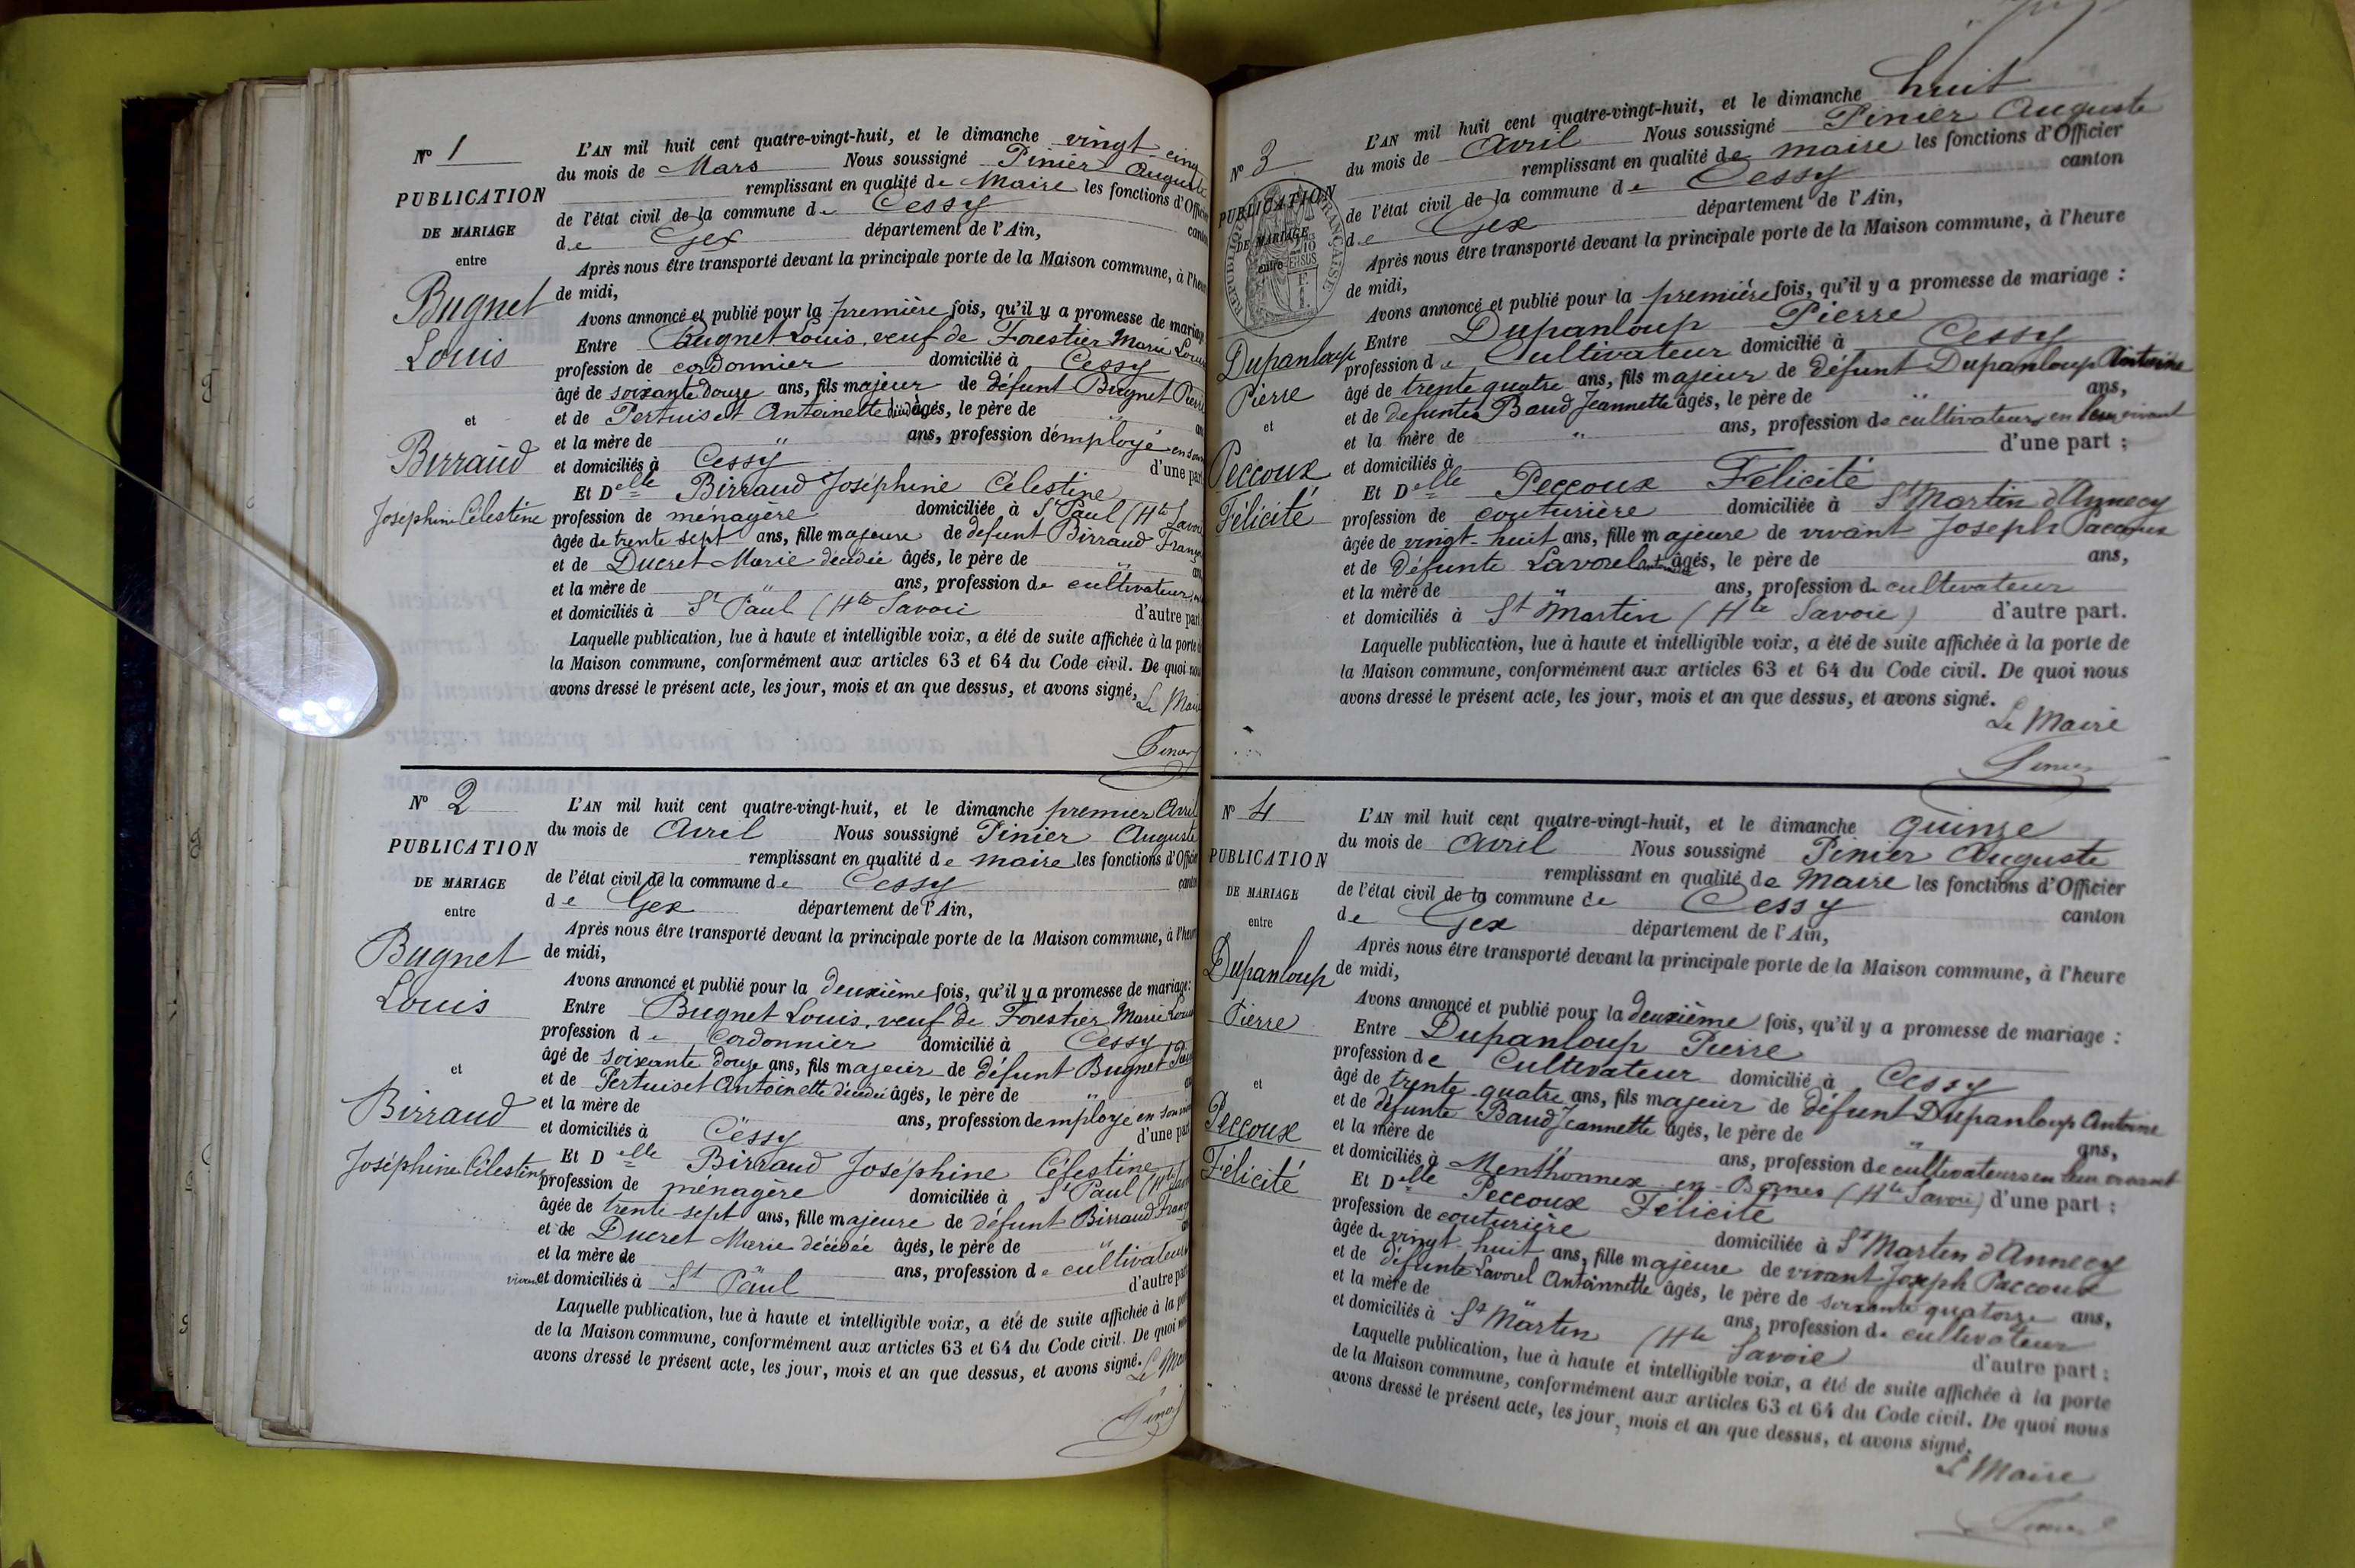 Nº 1
PUBLICATION
DE MARIAGE
entre
Bugnet
Louis
et
Birraud
Joséphine Célestine
L'AN mil huit cent quatre-vingt-huit, et le dimanche vingt cinq
du mois de Mars Nous soussigné Pinier Auguste
remplissant en qualité de Maire les fonctions d'Offici
de l'état civil de la commune de Cessy canton
de Gex département de l'Ain,
Après nous être transporté devant la principale porte de la Maison commune, à l'heure
de midi,
Avons annoncé et publié pour la première fois, qu'il y a promesse de mariage
Entre Bugnet Louis, veuf de Forestier Marie Louise
profession de cordonnier domicilié à Cessy
âgé de soixante douze ans, fils majeur de défunt Bugnet Pierre
et de Pertuiset Antoinette âgés, le père de " an
et la mère de " ans, profession d'employé en son
et domiciliés à Cessy d'une part
Et Delle Birraud Joséphine Célestine
profession de ménagère domiciliée à St Paul (Hte Savoie
âgée de trente sept ans, fille majeure de défunt Birraud Franç
et de Ducret Marie décédée âgés, le père de " an
et la mère de " ans, profession de cultivateur
et domiciliés à St Paul (Hte Savoie d'autre part
Laquelle publication, lue à haute et intelligible voix, a été de suite affichée à la porte
la Maison commune, conformément aux articles 63 et 64 du Code civil. De quoi nous
avons dressé le présent acte, les jour, mois et an que dessus, et avons signé,
Le Maire
Pinier
Nº 2
PUBLICATION
DE MARIAGE
entre
Bugnet
Louis
et
Birraud
Joséphine Célestine
L'AN mil huit cent quatre-vingt-huit, et le dimanche premier Avril
du mois de Avril Nous soussigné Pinier Auguste
remplissant en qualité de maire les fonctions d'Officier
de l'état civil de la commune de Cessy canton
de Gex département de l'Ain,
Après nous être transporté devant la principale porte de la Maison commune, à l'heure
de midi,
Avons annoncé et publié pour la deuxième fois, qu'il y a promesse de mariage:
Entre Bugnet Louis, veuf de Forestier Marie Louise
profession de Cordonnier domicilié à Cessy
âgé de soixante douze ans, fils majeur de défunt Bugnet
et de Pertuiset Antoinette décédée âgés, le père de " an
et la mère de ans, profession d'employé en son
et domiciliés à Cessy d'une part
Et Delle Birraud Joséphine Célestine
profession de ménagère domiciliée à St Paul (Hte
âgée de trente-sept ans, fille majeure de défunt Birraud Franç
et de Ducret Marie décédée âgés, le père de "
et la mère de " ans, profession de cultivateur
et domiciliés à St Paul d'autre part
Laquelle publication, lue à haute et intelligible voix, a été de suite affichée à la
de la Maison commune, conformément aux articles 63 et 64 du Code civil. De quoi
avons dressé le présent acte, les jour, mois et an que dessus, et avons signé.
Le Maire
Pinier
Nº 3
PUBLICATION
DE MARIAGE
entre
RÉPUBLIQUE FRANÇAISE
Dupanloup
Pierre
et
Peccoux
Félicité
L'AN mil huit cent quatre-vingt-huit, et le dimanche huit
du mois de Avril Nous soussigné Pinier Auguste
remplissant en qualité de maire les fonctions d'Officier
de l'état civil de la commune de Cessy canton
de Gex département de l'Ain,
Après nous être transporté devant la principale porte de la Maison commune, à l'heure
de midi,
Avons annoncé et publié pour la première fois, qu'il y a promesse de mariage :
Entre Dupanloup Pierre
profession de Cultivateur domicilié à Cessy
âgé de trente quatre ans, fils majeur de défunt Dupanloup Antoine
et de defunte Baud Jeannette âgés, le père de " ans,
et la mère de " ans, profession de cultivateurs en leur vivant
et domiciliés à d'une part ;
Et Delle Peccoux Félicité
profession de couturière domiciliée à St Martin d'Annecy
âgée de vingt-huit ans, fille majeure de vivant Joseph Paccoux
et de Défunte Lavorel âgés, le père de ans,
et la mère de " ans, profession de cultivateur
et domiciliés à St Martin (Hte Savoie) d'autre part.
Laquelle publication, lue à haute et intelligible voix, a été de suite affichée à la porte de
la Maison commune, conformément aux articles 63 et 64 du Code civil. De quoi nous
avons dressé le présent acte, les jour, mois et an que dessus, et avons signé.
Le Maire
Pinier
Nº 4
PUBLICATION
DE MARIAGE
entre
Dupanloup
Pierre
et
Peccoux
Félicité
L'AN mil huit cent quatre-vingt-huit, et le dimanche quinze
du mois de Avril Nous soussigné Pinier Auguste
remplissant en qualité de Maire les fonctions d'Officier
de l'état civil de la commune de Cessy canton
de Gex département de l'Ain,
Après nous être transporté devant la principale porte de la Maison commune, à l'heure
de midi,
Avons annoncé et publié pour la deuxième fois, qu'il y a promesse de mariage :
Entre Dupanloup Pierre
profession de Cultivateur domicilié à Cessy
âgé de trente-quatre ans, fils majeur de défunt Dupanloup Antoine
et de défunte Baud Jeannette âgés, le père de " ans,
et la mère de " ans, profession de cultivateurs en leur vivant
et domiciliés à Menthonnex-en-Bornes (Hte Savoie) d'une part ;
Et Delle Peccoux Félicité
profession de couturière domiciliée à St Martin d'Annecy
âgée de vingt-huit ans, fille majeure de vivant Joseph Paccoux
et de défunte Lavorel Antoinnette âgés, le père de soixante quatorze ans,
et la mère de " ans, profession de cultivateur
et domiciliés à St Martin (Hte Savoie) d'autre part ;
Laquelle publication, lue à haute et intelligible voix, a été de suite affichée à la porte
de la Maison commune, conformément aux articles 63 et 64 du Code civil. De quoi nous
avons dressé le présent acte, les jour, mois et an que dessus, et avons signé.
Le Maire